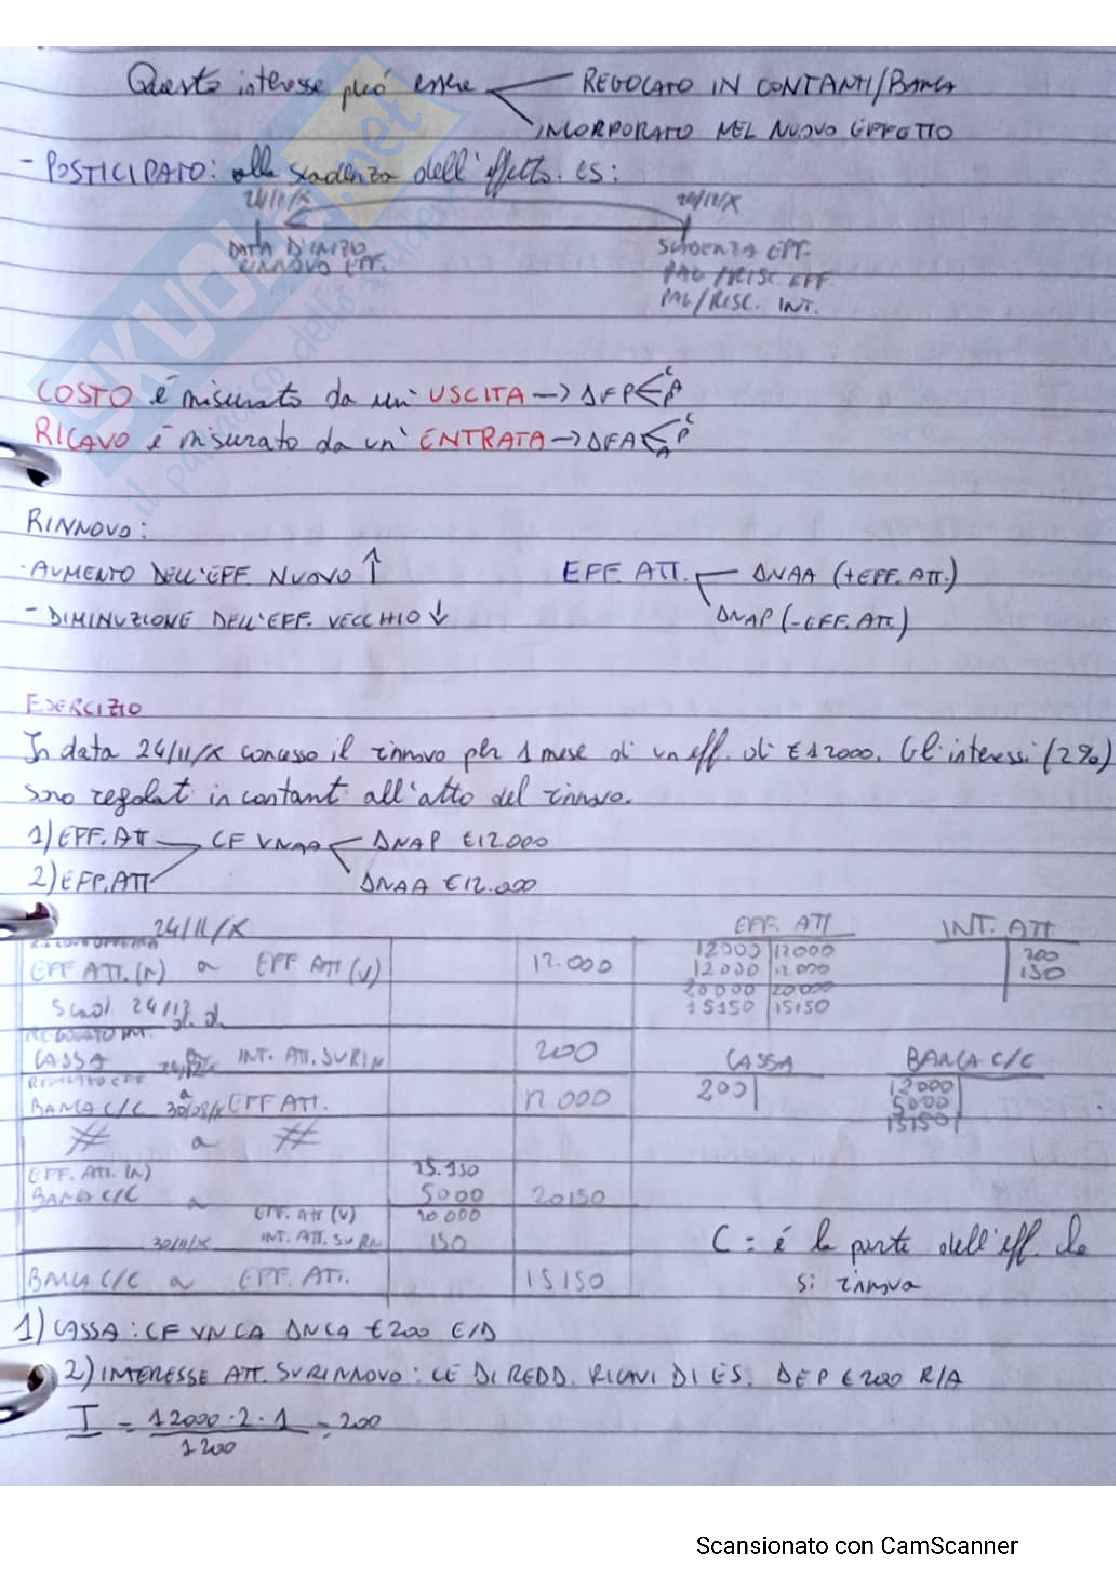 Questo interesse può essere REGOLATO IN CONTANTI/BANCA
INCORPORATO NEL NUOVO EFFETTO
- POSTICIPATO: alla scadenza dell'effetto. es:
24/11/X 24/12/X
DATA D'INIZIO SCADENZA EFF.
RINNOVO EFF. PAG/RISC EFF
PAG/RISC. INT.
COSTO è misurato da un' USCITA → ΔFP < C P
RICAVO è misurato da un' ENTRATA → ΔFA < C P A
RINNOVO:
- AUMENTO DELL'EFF. NUOVO ↑ EFF. ATT. ΔNAA (+EFF. ATT.)
- DIMINUZIONE DELL'EFF. VECCHIO ↓ ΔNAP (-EFF. ATT)
ESERCIZIO
In data 24/11/X concesso il rinnovo per 1 mese di un eff. di €12000. Gli interessi (2%)
sono regolati in contanti all'atto del rinnovo.
1) EFF. ATT CF VNAA ΔNAP €12.000
2) EFF. ATT ΔNAA €12.000
24/11/X EFF. ATT INT. ATT
EFF ATT. (N) a EFF ATT (V) 12.000
12000 | 12000
12000 | 12000
20000 | 20000
15150 | 15150
200
150
Scad. 24/12
REGOLATO INT.
CASSA INT. ATT. SU RIN 200 CASSA BANCA C/C
200
12000
5000
15150
BANCA C/C a EFF ATT. 12 000
# a #
EFF. ATT. (N) 15.150
BANCA C/C a 5000 20150
EFF. ATT (V) 20000
30/11/X INT. ATT. SU RIN 150 C = è la parte dell'eff. che
si rinnova
BANCA C/C a EFF. ATT. 15150
1) CASSA: CF VNCA ΔNCA €200 E/D
2) INTERESSE ATT. SU RINNOVO: CE DI REDD. RICAVI DI ES. ΔEP €200 R/A
I = 12000 · 2 · 1 = 200
1200
Scansionato con CamScanner
SKUOLA.net